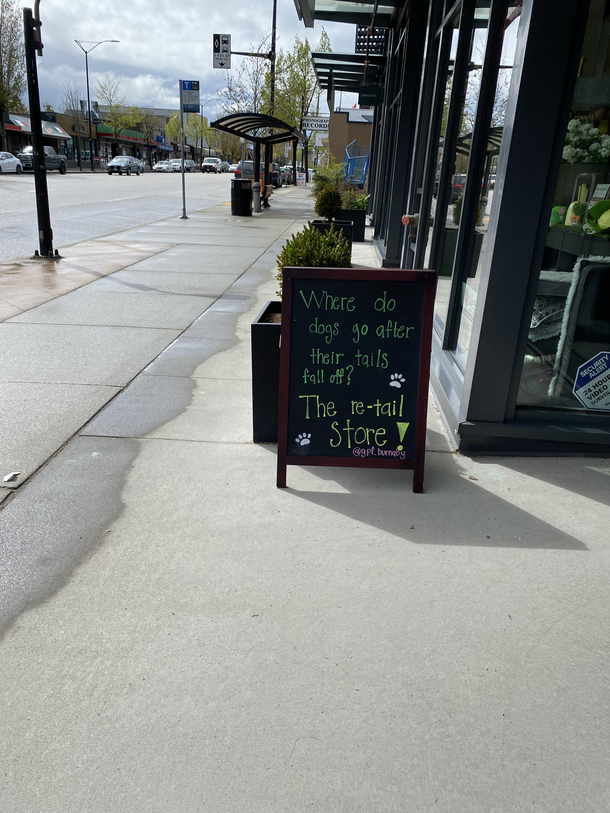 Where do
dogs go after
their tails
fall off?
The re-tail
Store!
@gpf.burnaby
RECORDS
SECURITY
ALERT
24 HOUR
VIDEO
T